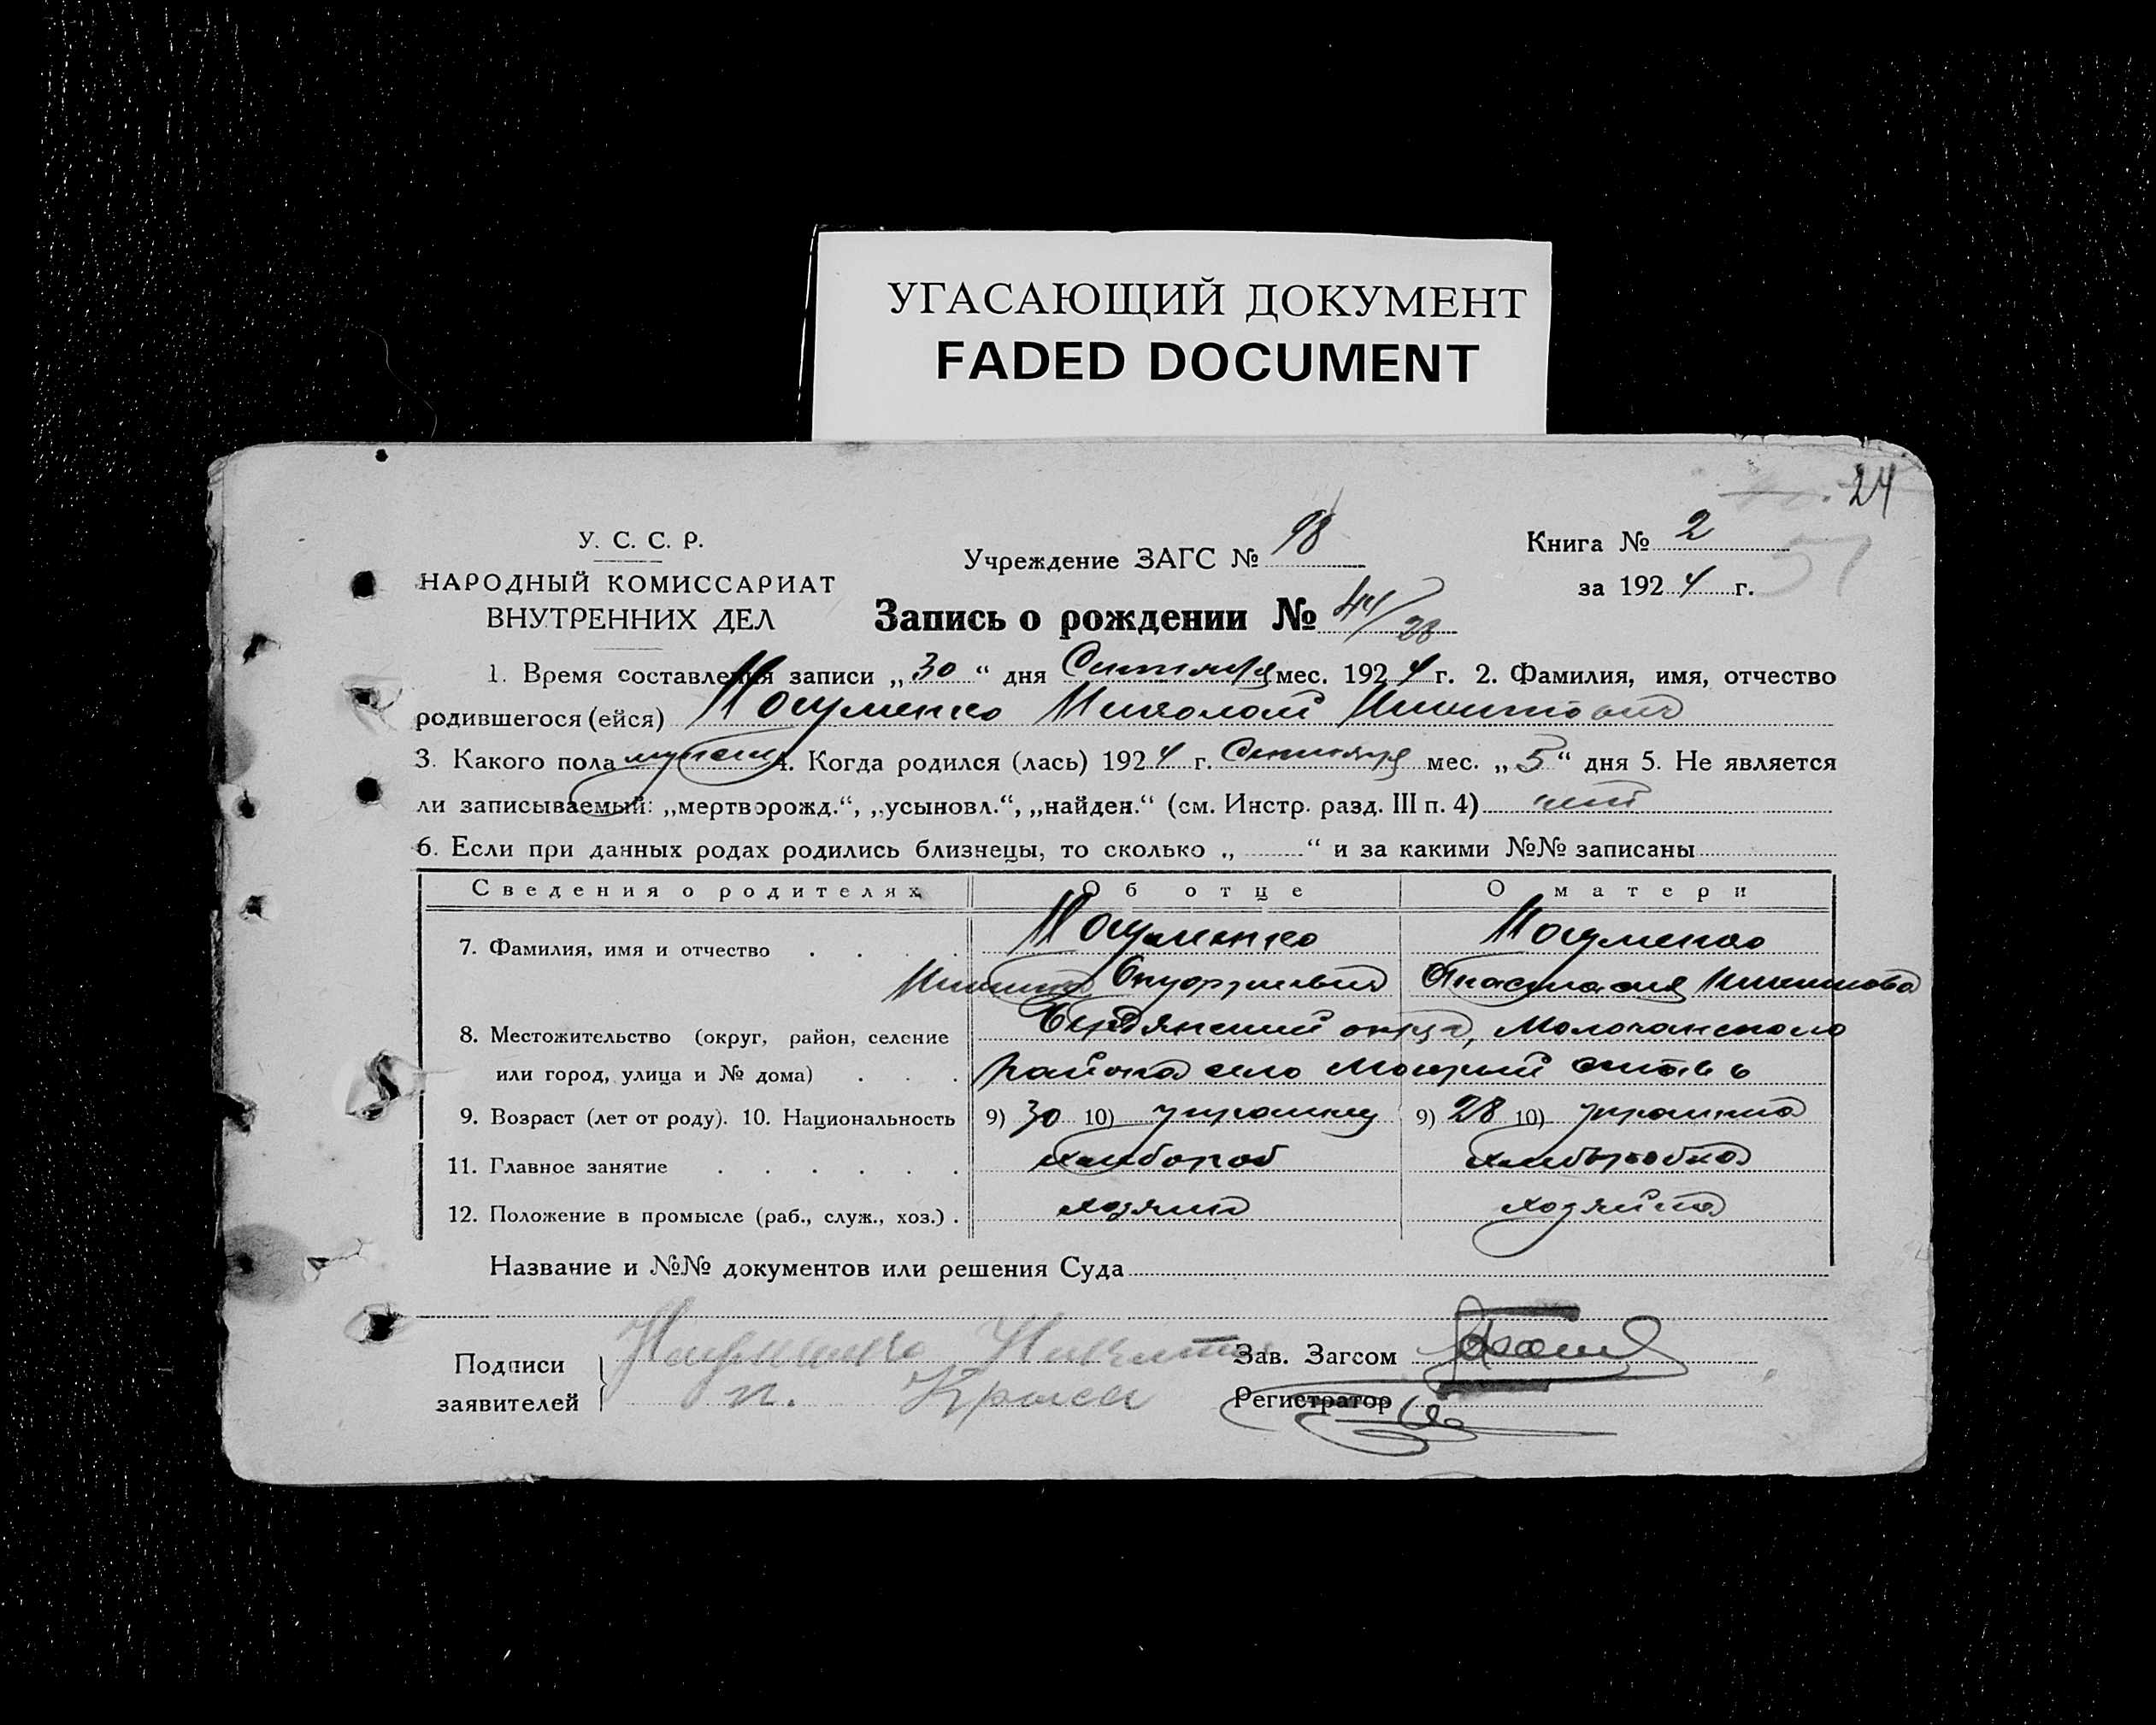 УГАСАЮЩИЙ ДОКУМЕНТ
FADED DOCUMENT
24
У. С. С. Р.
НАРОДНЫЙ КОМИССАРИАТ
ВНУТРЕННИХ ДЕЛ
Учреждение ЗАГС № 98
Книга № 2
за 1924 г.
57
Запись о рождении № 44/28
1. Время составления записи „30“ дня Сентября мес. 1924 г. 2. Фамилия, имя, отчество
родившегося (ейся) Николай
3. Какого пола 4. Когда родился (лась) 1924 г. Сентября мес. „5“ дня 5. Не является
ли записываемый: „мертворожд.“, „усыновл.“, „найден.“ (см. Инстр. разд. III п. 4) нет
6. Если при данных родах родились близнецы, то сколько „ “ и за какими №№ записаны
Сведения о родителях Об отце О матери
7. Фамилия, имя и отчество
Никита Анастасия
8. Местожительство (округ, район, селение Бердянский округ, Молочанского
или город, улица и № дома) района село
9. Возраст (лет от роду). 10. Национальность 9) 30 10) 9) 28 10)
11. Главное занятие хлебороб хлеборобка
12. Положение в промысле (раб., служ., хоз.) хозяин
Название и №№ документов или решения Суда
Подписи
заявителей
Никита
Зав. Загсом
Регистратор